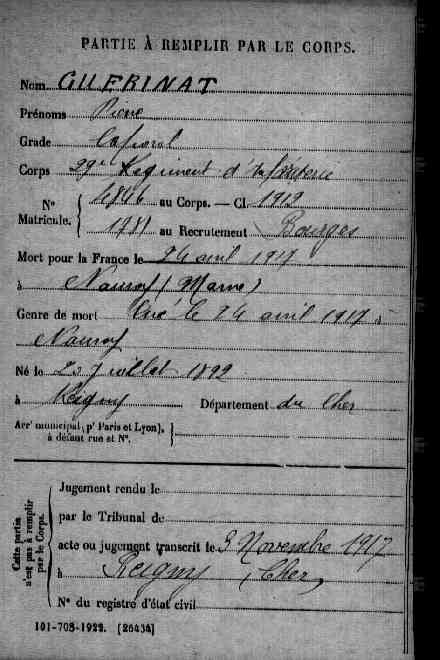 PARTIE À REMPLIR PAR LE CORPS.
Nom GUERINAT
Prénoms Pierre
Grade Caporal
Corps 29e Régiment d'Infanterie
N° Matricule. { 4846 au Corps. — Cl. 1912
au Recrutement Bourges
Mort pour la France le 24 avril 1917
à Nauroy (Marne)
Genre de mort Tué le 24 avril 1917 à
Nauroy
Né le 23 Juillet 1892
à Reigny Département du Cher
Arr' municipal (p' Paris et Lyon),
à défaut rue et N°.
Cette partie
n'est pas à remplir
par le Corps.
Jugement rendu le
par le Tribunal de
acte ou jugement transcrit le 3 Novembre 1917
à Reigny (Cher)
N° du registre d'état civil
101-708-1922. [26434]